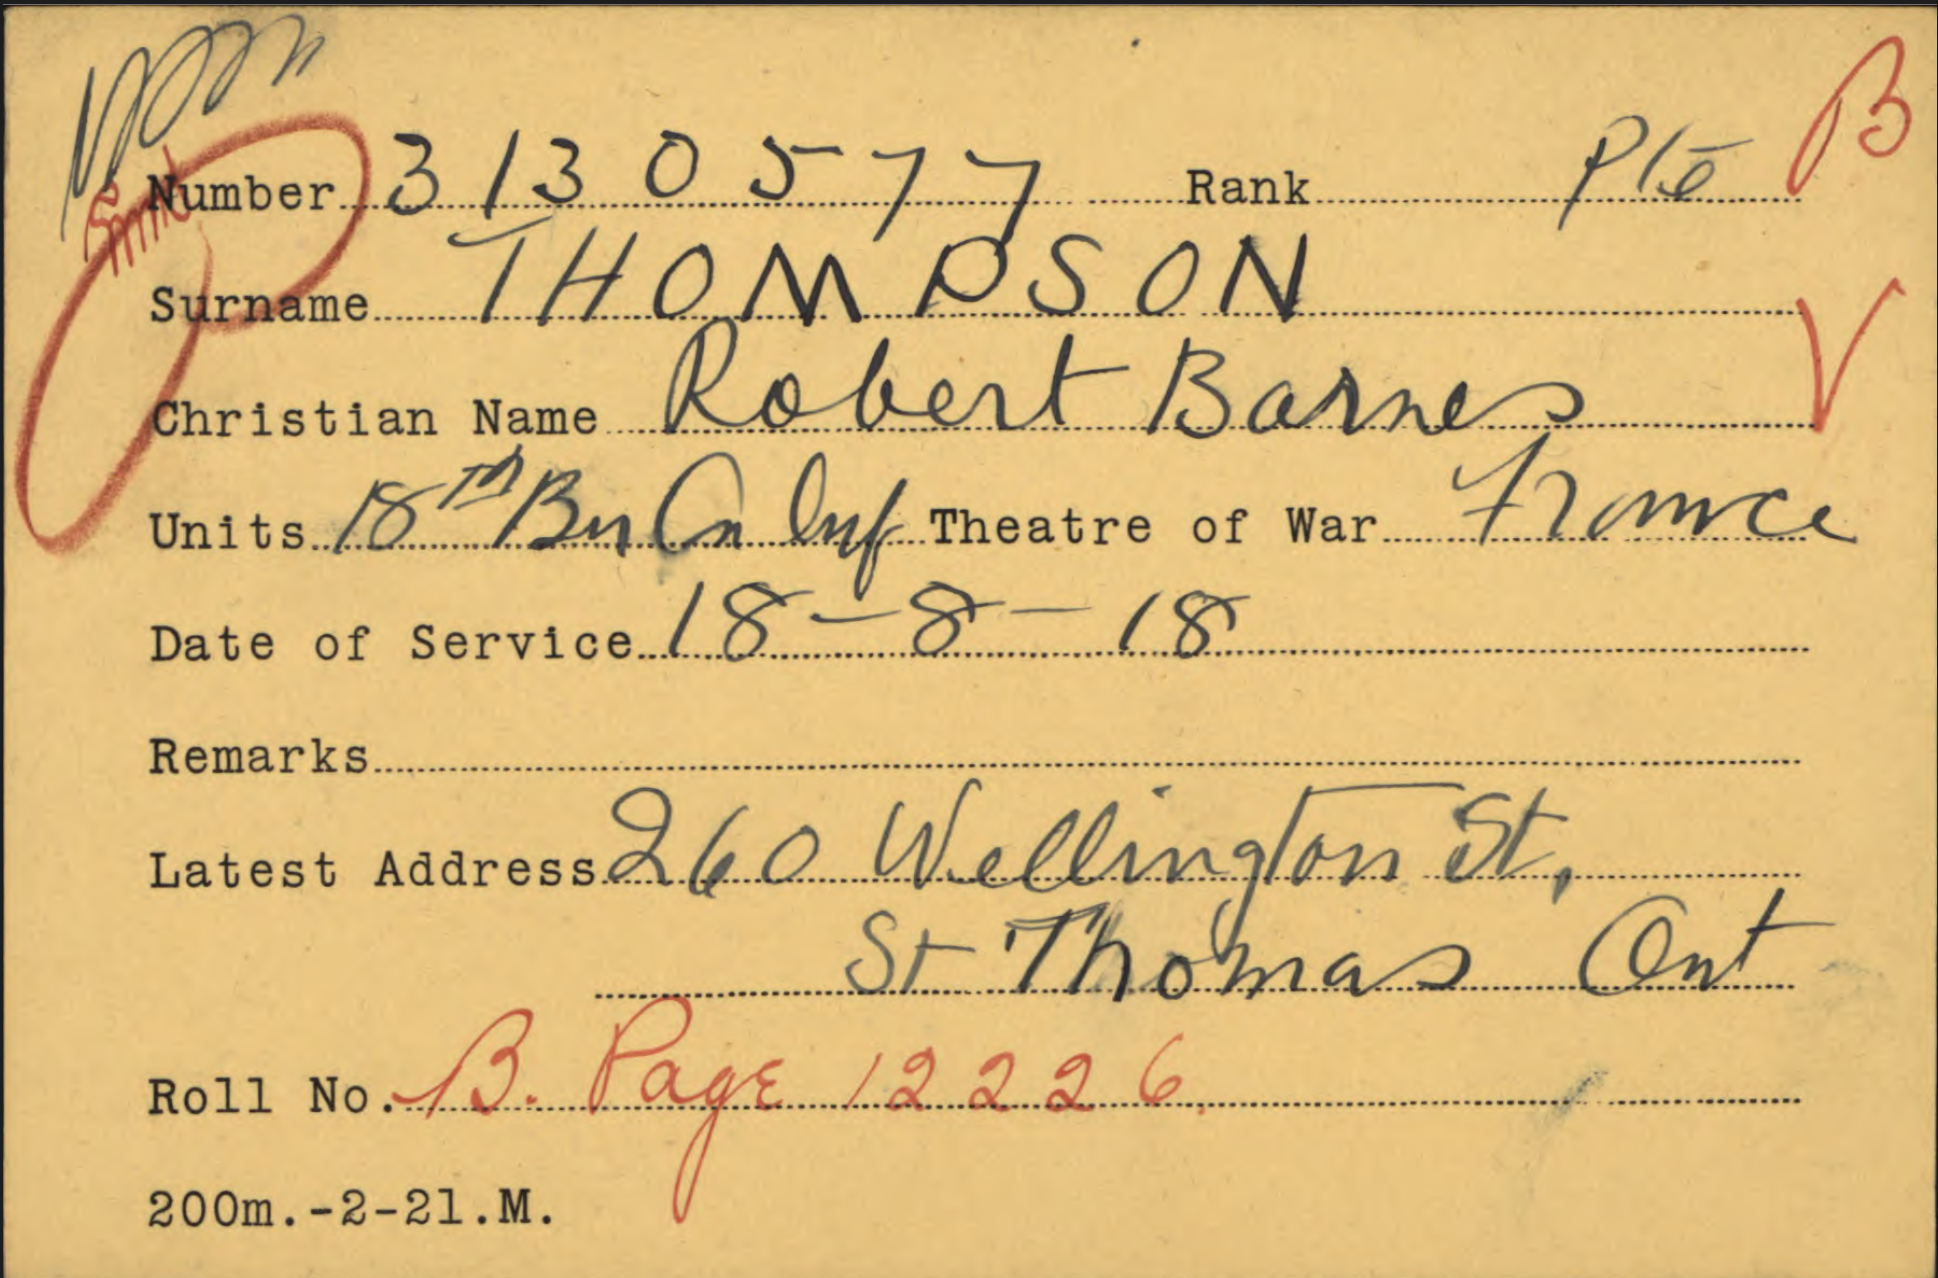 Number 3130577 Rank Pte B
Surname THOMPSON
Christian Name Robert Barnes
Units 18th Bn Cn Inf Theatre of War France
Date of Service 18-8-18
Remarks
Latest Address 260 Wellington St,
St Thomas Ont
Roll No. B. Page 12226.
200m.-2-21.M.